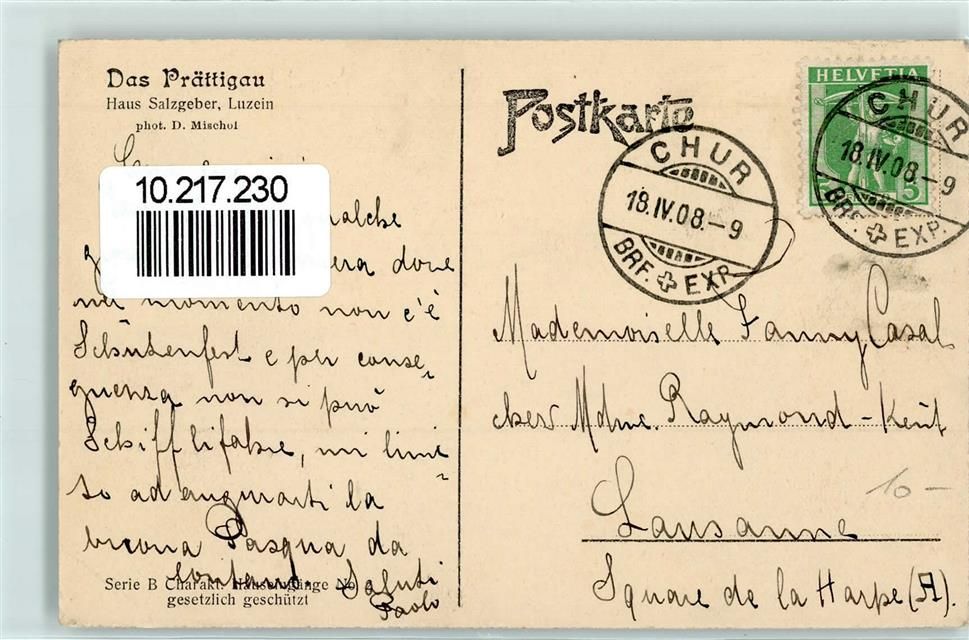 Das Prättigau
Haus Salzgeber, Luzein
phot. D. Mischol
10.217.230
qualche
dove
nel momento non c'è
Schützenfest e per conse-
guenza non si può
Schifflifahre, mi limi-
to ad augurarti la
buona Pasqua da
lontano. Saluti
Paolo
Serie B Charakt. Hauseingänge No
gesetzlich geschützt
Postkarte
HELVETIA
5
CHUR
18.IV.08.–9
BRF. EXP.
CHUR
18.IV.08.–9
BRF. EXP.
Mademoiselle Fanny Casal
chez Mdme. Raymond - Keüt
Lausanne
Square de la Harpe (A).
10 –